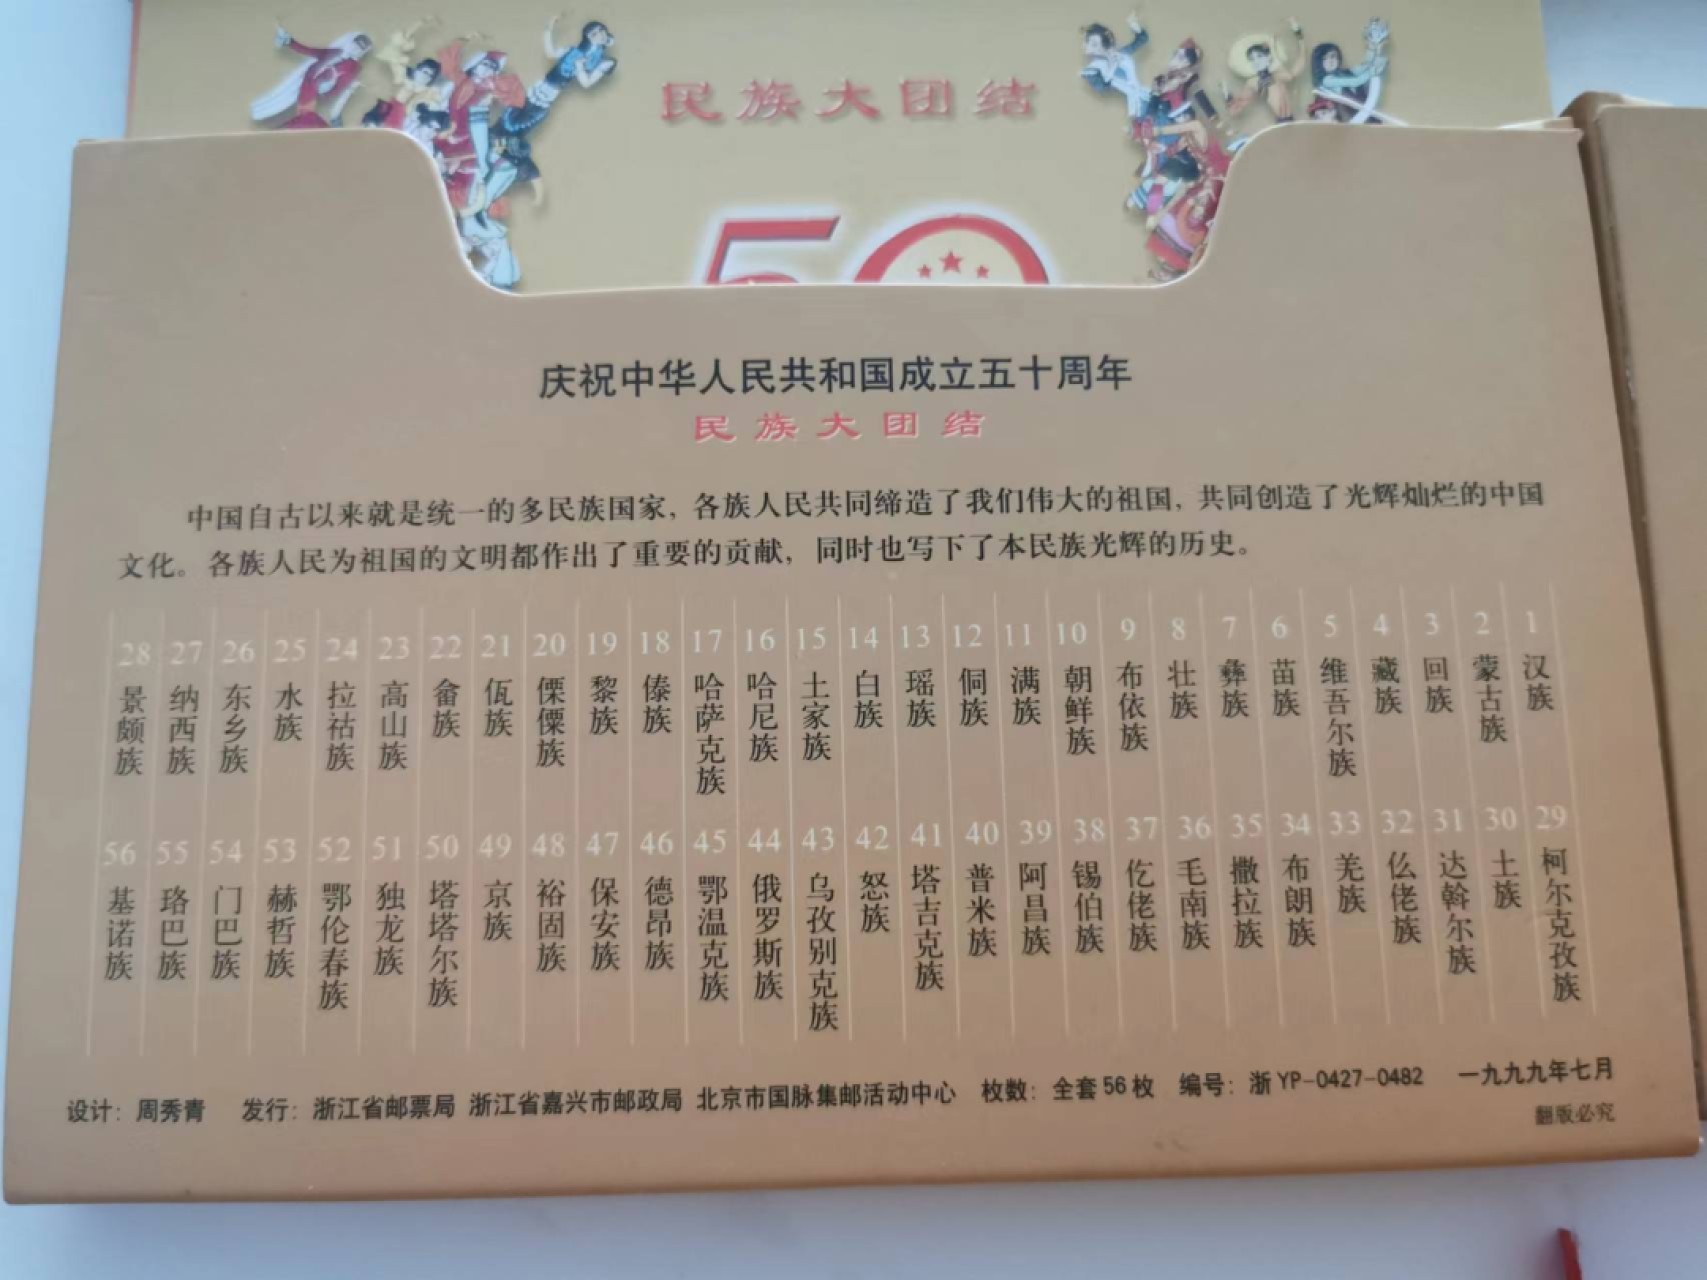 民族大团结
50
庆祝中华人民共和国成立五十周年
民族大团结
中国自古以来就是统一的多民族国家，各族人民共同缔造了我们伟大的祖国，共同创造了光辉灿烂的中国
文化。各族人民为祖国的文明都作出了重要的贡献，同时也写下了本民族光辉的历史。
1 汉族
2 蒙古族
3 回族
4 藏族
5 维吾尔族
6 苗族
7 彝族
8 壮族
9 布依族
10 朝鲜族
11 满族
12 侗族
13 瑶族
14 白族
15 土家族
16 哈尼族
17 哈萨克族
18 傣族
19 黎族
20 傈僳族
21 佤族
22 畲族
23 高山族
24 拉祜族
25 水族
26 东乡族
27 纳西族
28 景颇族
29 柯尔克孜族
30 土族
31 达斡尔族
32 仫佬族
33 羌族
34 布朗族
35 撒拉族
36 毛南族
37 仡佬族
38 锡伯族
39 阿昌族
40 普米族
41 塔吉克族
42 怒族
43 乌孜别克族
44 俄罗斯族
45 鄂温克族
46 德昂族
47 保安族
48 裕固族
49 京族
50 塔塔尔族
51 独龙族
52 鄂伦春族
53 赫哲族
54 门巴族
55 珞巴族
56 基诺族
设计：周秀青 发行：浙江省邮票局 浙江省嘉兴市邮政局 北京市国脉集邮活动中心 枚数：全套56枚 编号：浙YP-0427-0482 一九九九年七月
翻版必究